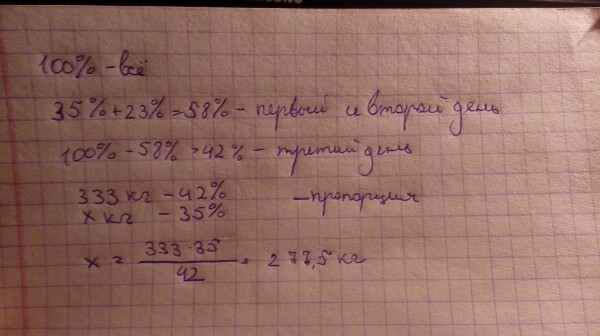 100% - всё
35% + 23% = 58% - первый и второй день
100% - 58% = 42% - третий день
333 кг - 42% - пропорция
х кг - 35%
х = 333 · 35 / 42 = 277,5 кг